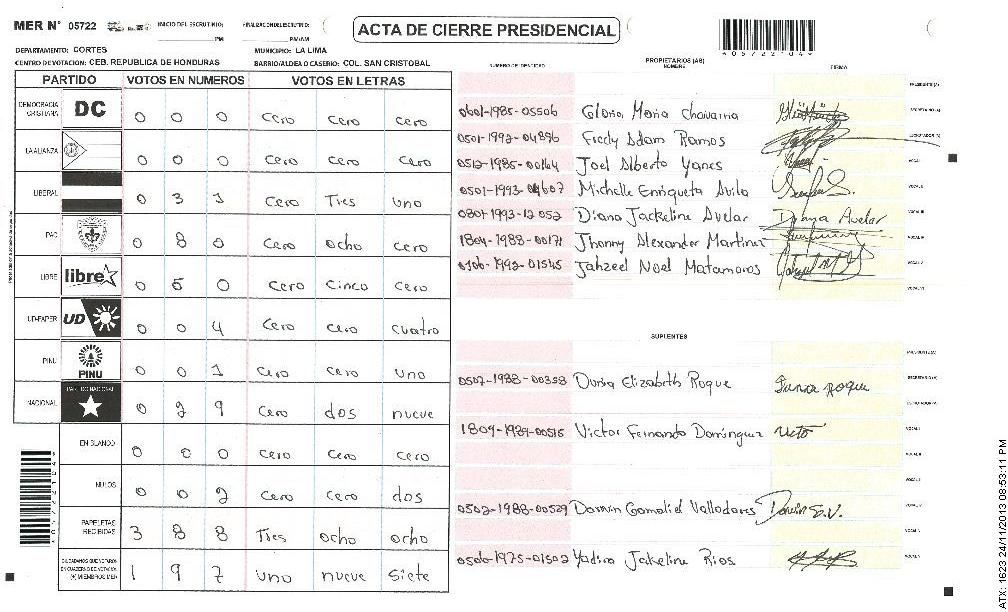 MER N° 05722 INICIO DEL ESCRUTINIO: PM FINALIZACION DEL ESCRUTINIO: PM/AM
ACTA DE CIERRE PRESIDENCIAL
DEPARTAMENTO: CORTES MUNICIPIO: LA LIMA
CENTRO DE VOTACION: CEB. REPUBLICA DE HONDURAS BARRIO/ALDEA O CASERIO: COL. SAN CRISTOBAL
PARTIDO VOTOS EN NUMEROS VOTOS EN LETRAS
DEMOCRACIA CRISTIANA DC 0 0 0 cero cero cero
LA ALIANZA 0 0 0 cero cero cero
LIBERAL 0 3 1 cero Tres uno
PAC 0 8 0 cero ocho cero
LIBRE libre 0 5 0 cero cinco cero
UD-FAPER UD 0 0 4 cero cero cuatro
PINU PINU 0 0 1 cero cero uno
NACIONAL PARTIDO NACIONAL 0 2 9 cero dos nueve
EN BLANCO 0 0 0 cero cero cero
NULOS 0 0 2 cero cero dos
PAPELETAS RECIBIDAS 3 8 8 Tres ocho ocho
CIUDADANOS QUE VOTARON EN CUADERNO DE VOTACION (+) MIEMBROS MER 1 9 7 uno nueve siete
NUMERO DE IDENTIDAD PROPIETARIOS (AS) NOMBRE FIRMA
PRESIDENTE (A)
0601-1985-05506 Gloria Maria Chavarria SECRETARIO (A)
0501-1992-04896 Fredy Adam Ramos ESCRUTADOR (A)
0512-1985-00164 Joel Alberto Yanes VOCAL I
0501-1993- Michelle Enriqueta Avila VOCAL II
0801-1993-12052 Diana Jackeline Avelar Avelar VOCAL III
1804-1988-00171 Jhonny Alexander Martinez VOCAL IV
0106-1992-01545 Jahzeel Noel Matamoros VOCAL V
VOCAL VI
SUPLENTES
PRESIDENTE (A)
0502-1988-00358 Dunia Elizabeth Roque Dunia Roque SECRETARIO (A)
ESCRUTADOR (A)
1809-1989-00515 Victor Fernando Dominguez VOCAL I
VOCAL II
0502-1988-00529 Darwin Gamaliel Valladares Darwin G.V.
0506-1975-01502 Yadira Jakeline Rios
ATX: 1623 24/11/2013 08:53:11 PM